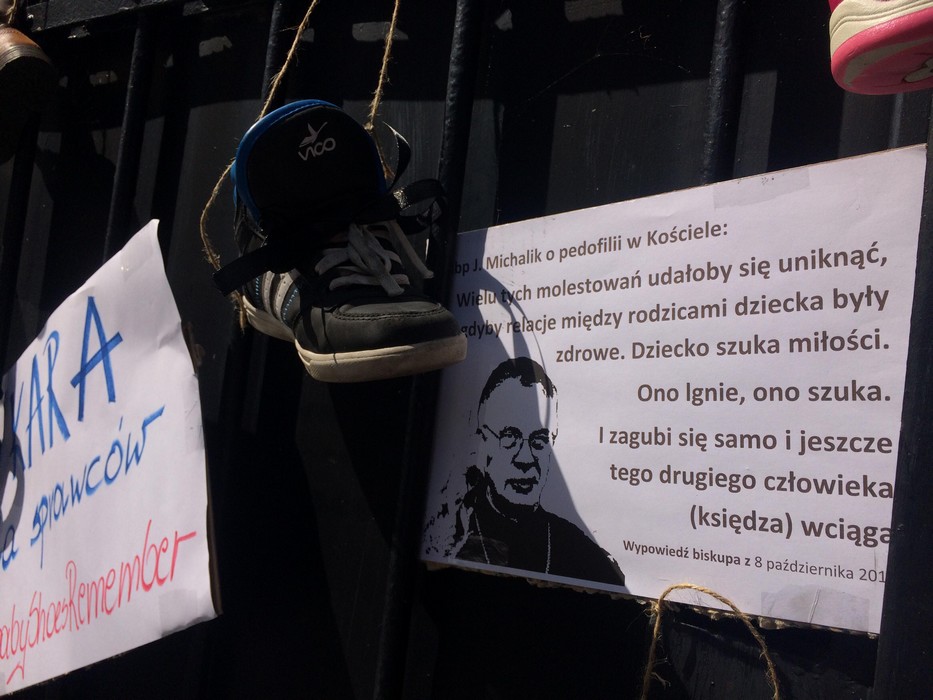 VICO
bp J. Michalik o pedofilii w Kościele:
Wielu tych molestowań udałoby się uniknąć,
gdyby relacje między rodzicami dziecka były
zdrowe. Dziecko szuka miłości.
Ono lgnie, ono szuka.
I zagubi się samo i jeszcze
tego drugiego człowieka
(księdza) wciąga
Wypowiedź biskupa z 8 października 201
KARA
a sprawców
abyShoesRemember